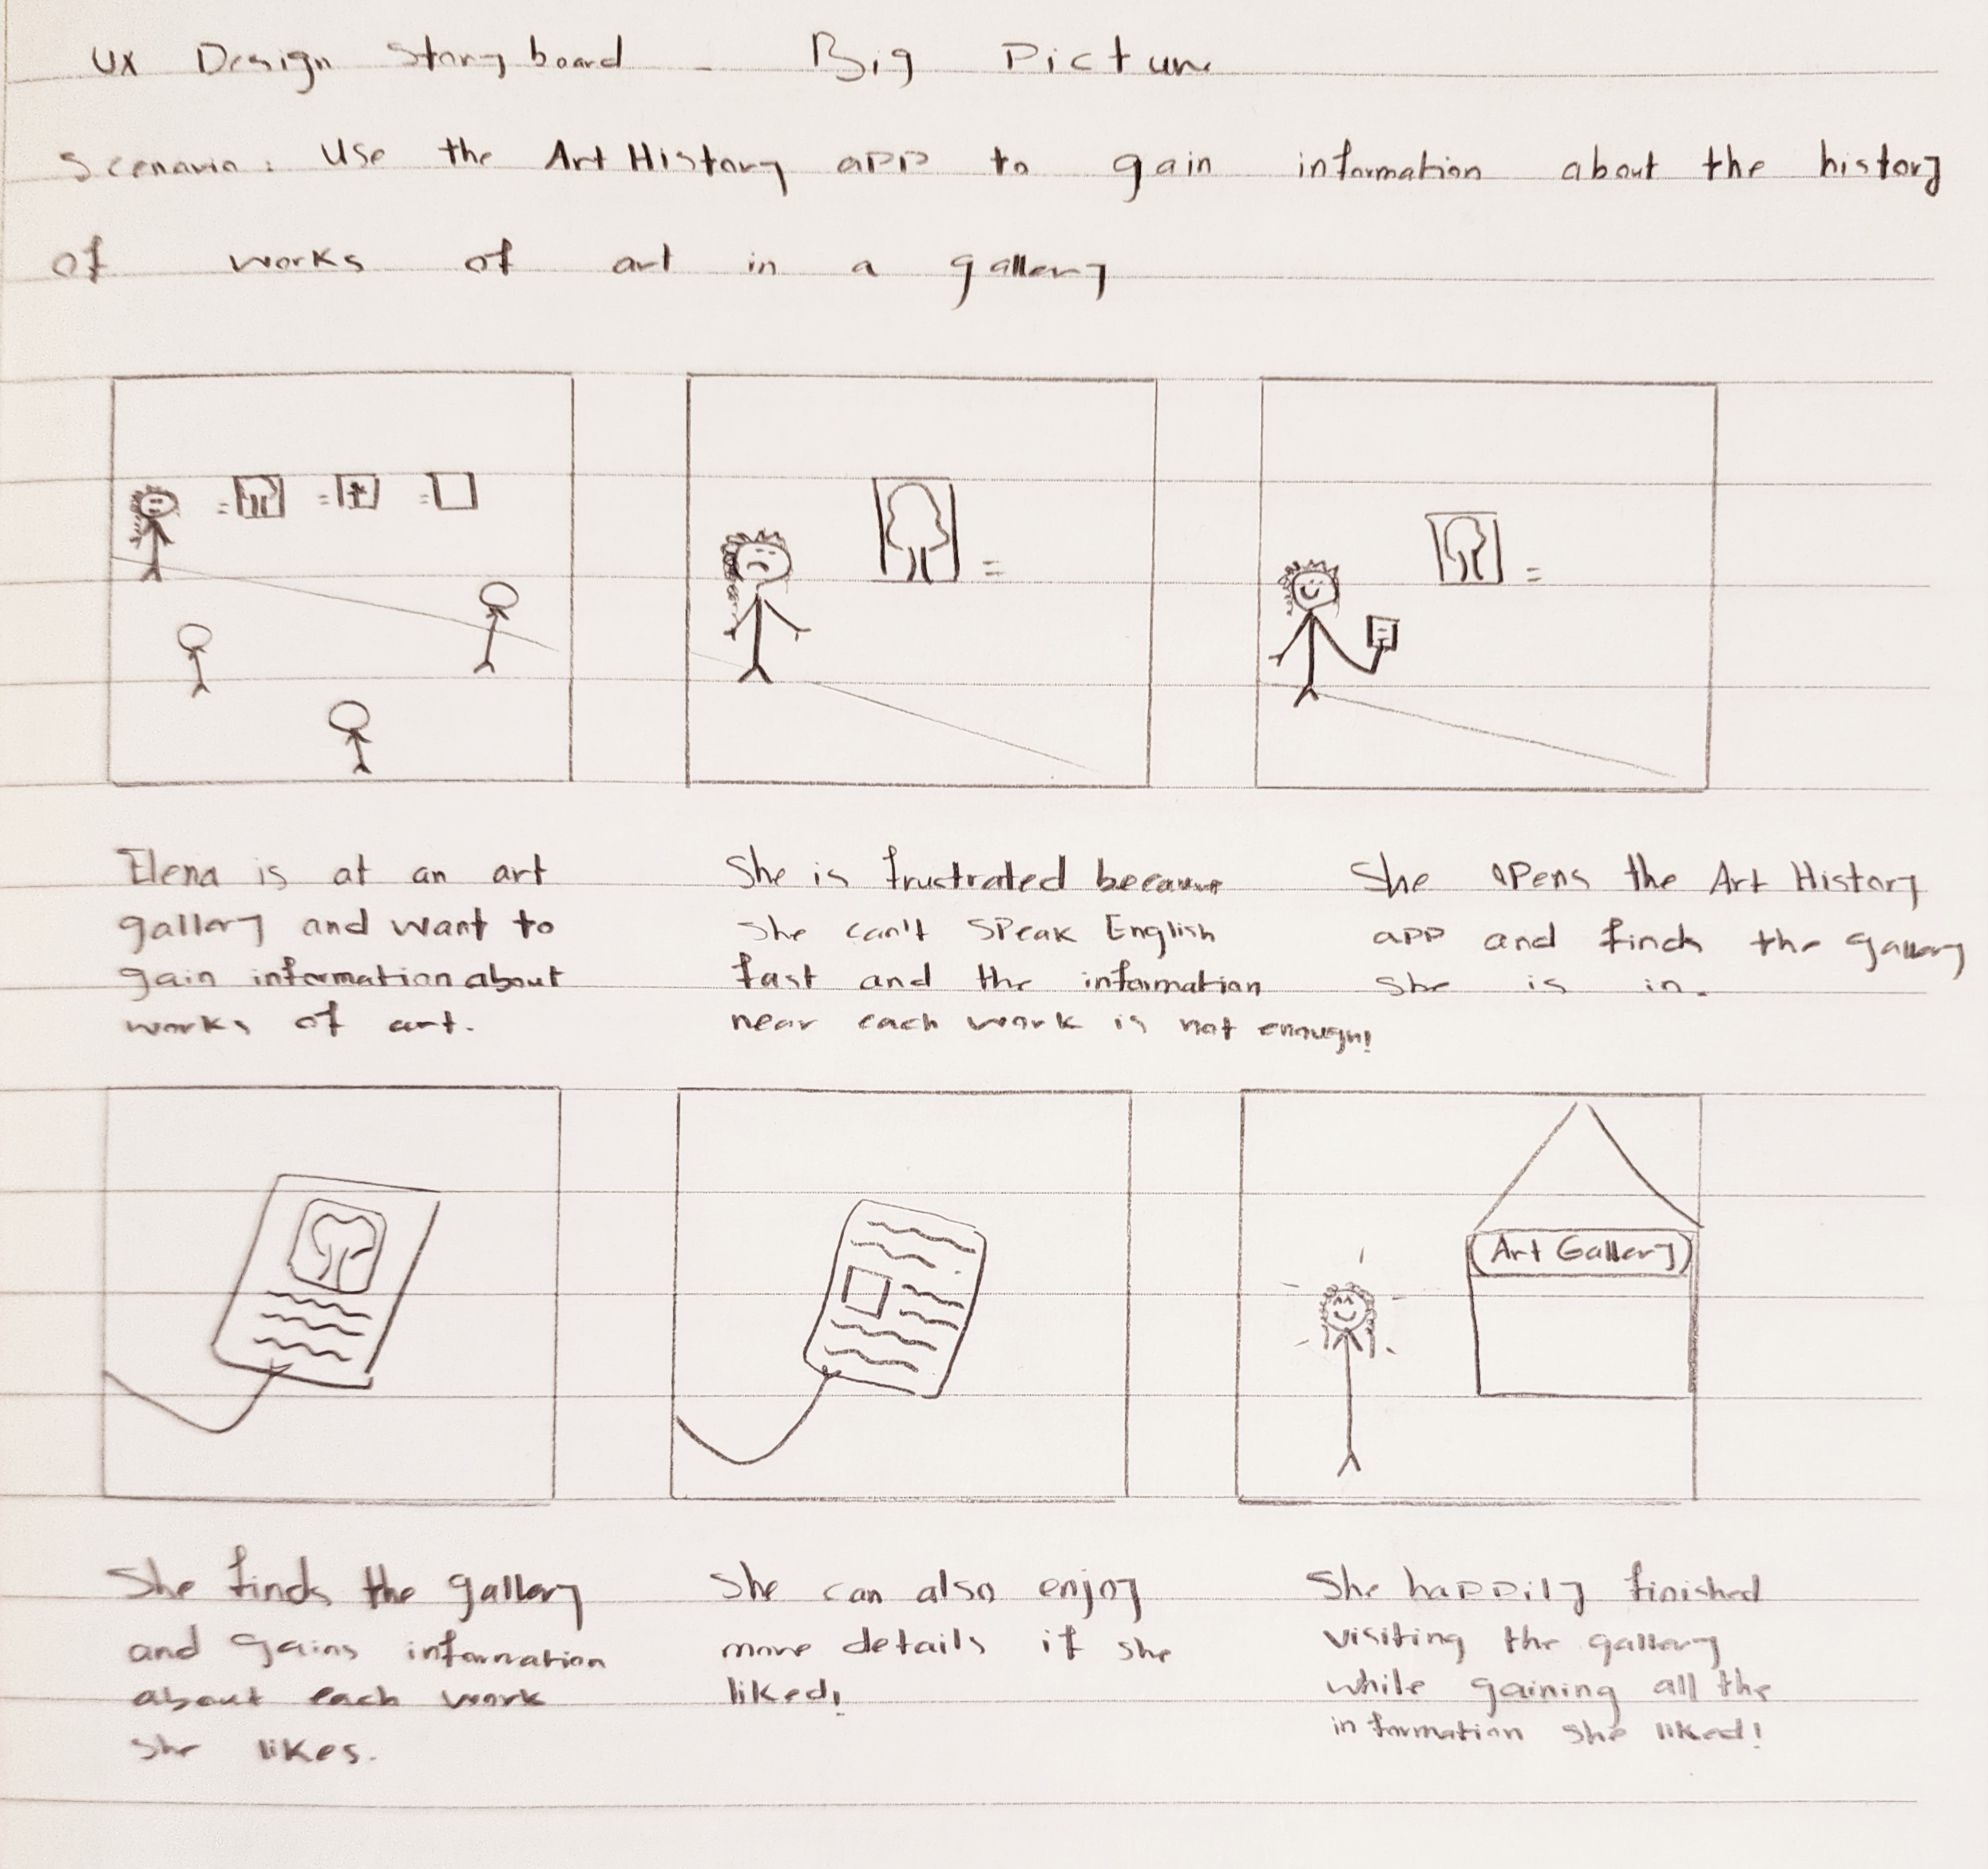 UX Design Storyboard - Big Picture
Scenario: Use the Art History app to gain information about the history
of works of art in a gallery
Elena is at an art
gallery and want to
gain information about
works of art.
She is frustrated because
she can't speak English
fast and the information
near each work is not enough!
She opens the Art History
app and finds the gallery
she is in.
Art Gallery
She finds the gallery
and gains information
about each work
she likes.
She can also enjoy
more details if she
liked!
She happily finished
visiting the gallery
while gaining all the
information she liked!